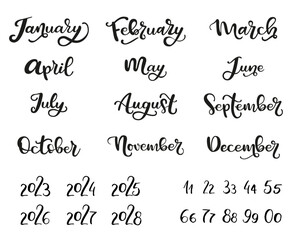 January February March
April May June
July August September
October November December
2023 2024 2025 11 22 33 44 55
2026 2027 2028 66 77 88 99 00